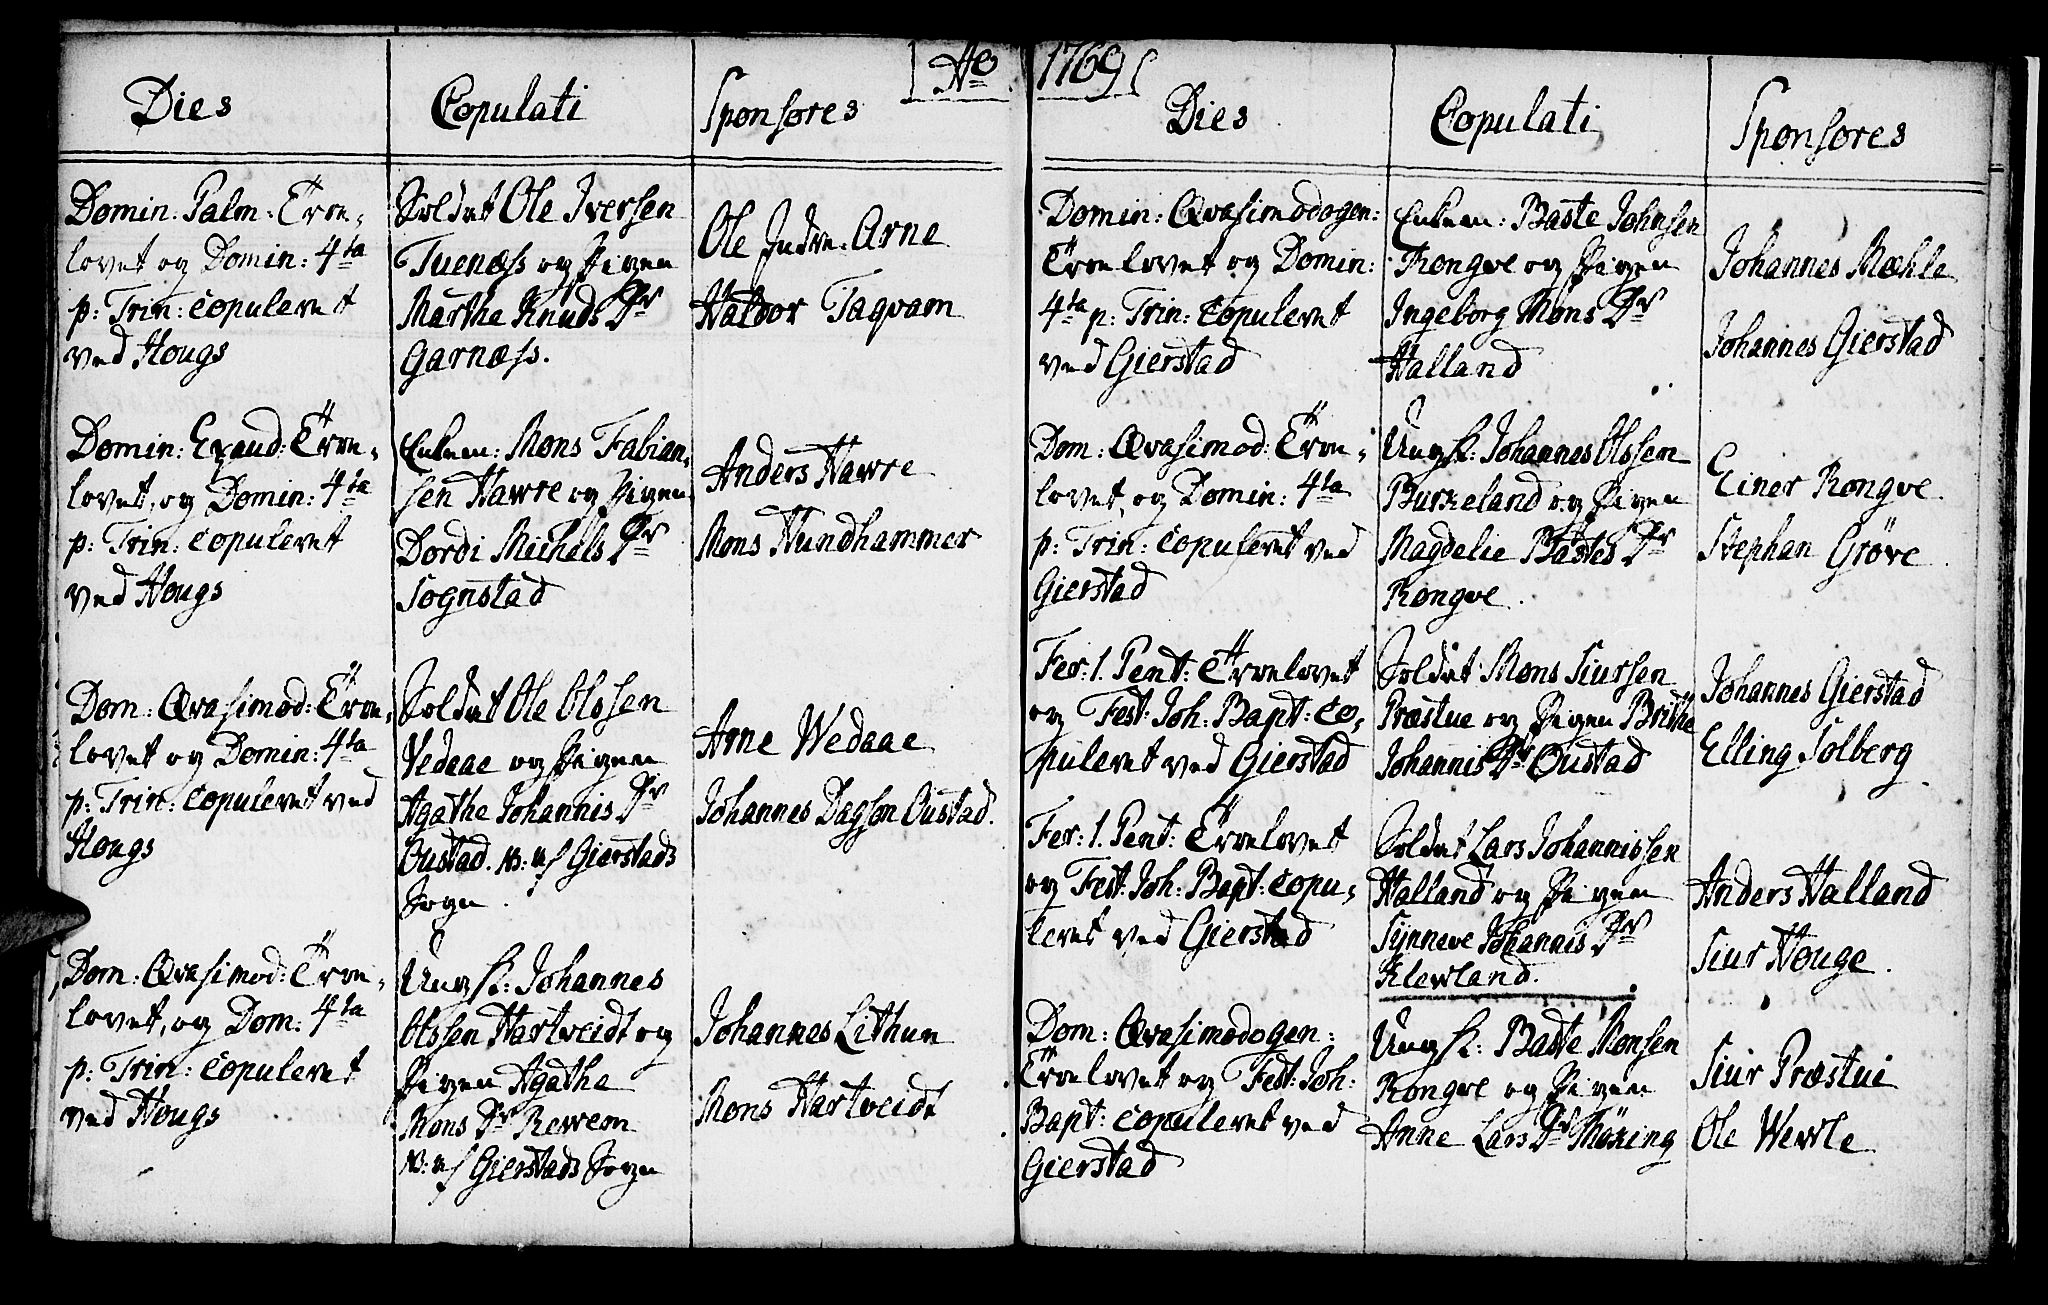 Ao 1769
Dies
Copulati
Sponsores
Domin: Palm: Troe-
lovet og Domin: 4ta
p: Trin: copuleret
ved Hougs
Soldat Ole Iversen
Tuenæss og Pigen
Marthe Knuds Dr
Garnæss.
Ole Indre-Arne
Haldor Taqvam
Domin: Exaud: Troe-
lovet, og Domin: 4ta
p: Trin: copuleret
ved Hougs
Enkem: Mons Fabian-
sen Hawre og Pigen
Dordi Michels Dr
Sognstad
Anders Hawre
Mons Hundhammer
Dom: Qvasimod: Troe-
lovet og Domin: 4ta
p: Trin: copuleret ved
Hougs
Soldat Ole Olssen
Vedaae og Pigen
Agathe Johannis Dr
Oustad. N: af Gierstads
Sogn.
Arne Wedaae
Johannes Dagson Oustad.
Dom: Qvasimod: Troe-
lovet, og Dom: 4ta
p: Trin: copuleret
ved Hougs
Ung K: Johannes
Olssen Hartveidt og
Pigen Agathe
Mons Dr Rewem
N: af Gierstads Sogn
Johannes Lithun
Mons Hartveidt
Dies
Copulati
Sponsores
Domin: Qvasimodogen:
Troelovet og Domin:
4ta p: Trin: copuleret
ved Gierstad
Enkem: Baste Johnsen
Rongve og Pigen
Ingeborg Mons Dr
Halland
Johannes Mæhle
Johannes Gierstad
Dom: Qvasimod: Troe-
lovet, og Domin: 4ta
p: Trin: copuleret ved
Gierstad
Ung K: Johannes Olssen
Burkeland og Pigen
Magdelie Bastes Dr
Rongve.
Einer Rongve.
Stephan Gröve.
Fer: 1. Pent: Troelovet
og Fest: Joh: Bapt: co-
puleret ved Gierstad
Soldat Mons Siursen
Præstue og Pigen Brithe
Johannis Dr Oustad
Johannes Gierstad
Elling Solberg
Fer: 1. Pent: Troelovet
og Fest: Joh: Bapt: copu-
leret ved Gierstad
Soldat Lars Johannissen
Halland og Pigen
Synneve Johannis Dr
Klewland.
Anders Halland
Siur Houge.
Dom: Qvasimodogen:
Troelovet og Fest: Joh:
Bapt: copuleret ved
Gierstad
Ung K: Baste Monsen
Rongve og Pigen
Anne Lars Dr Möxing
Siur Præstui
Ole Werle